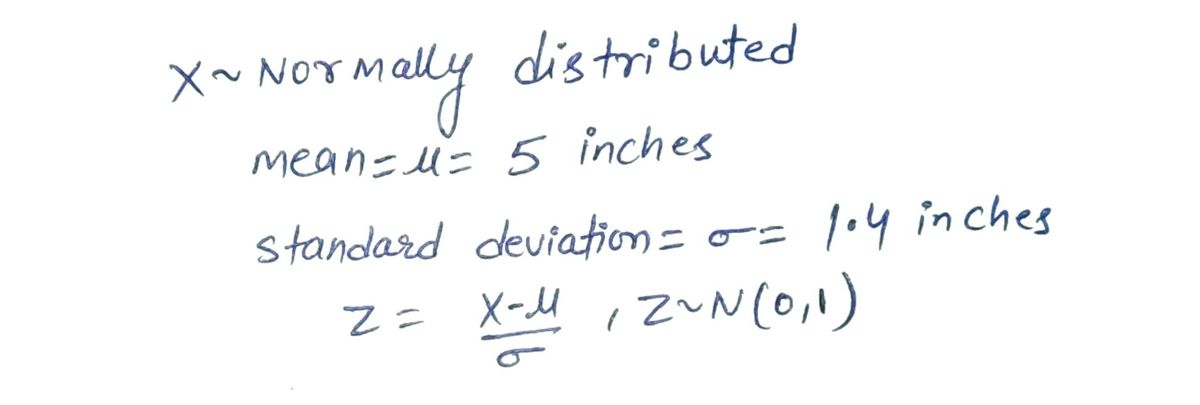 X ~ Normally distributed
mean = μ = 5 inches
standard deviation = σ = 1.4 inches
Z = (X-μ)/σ , Z ~ N(0,1)